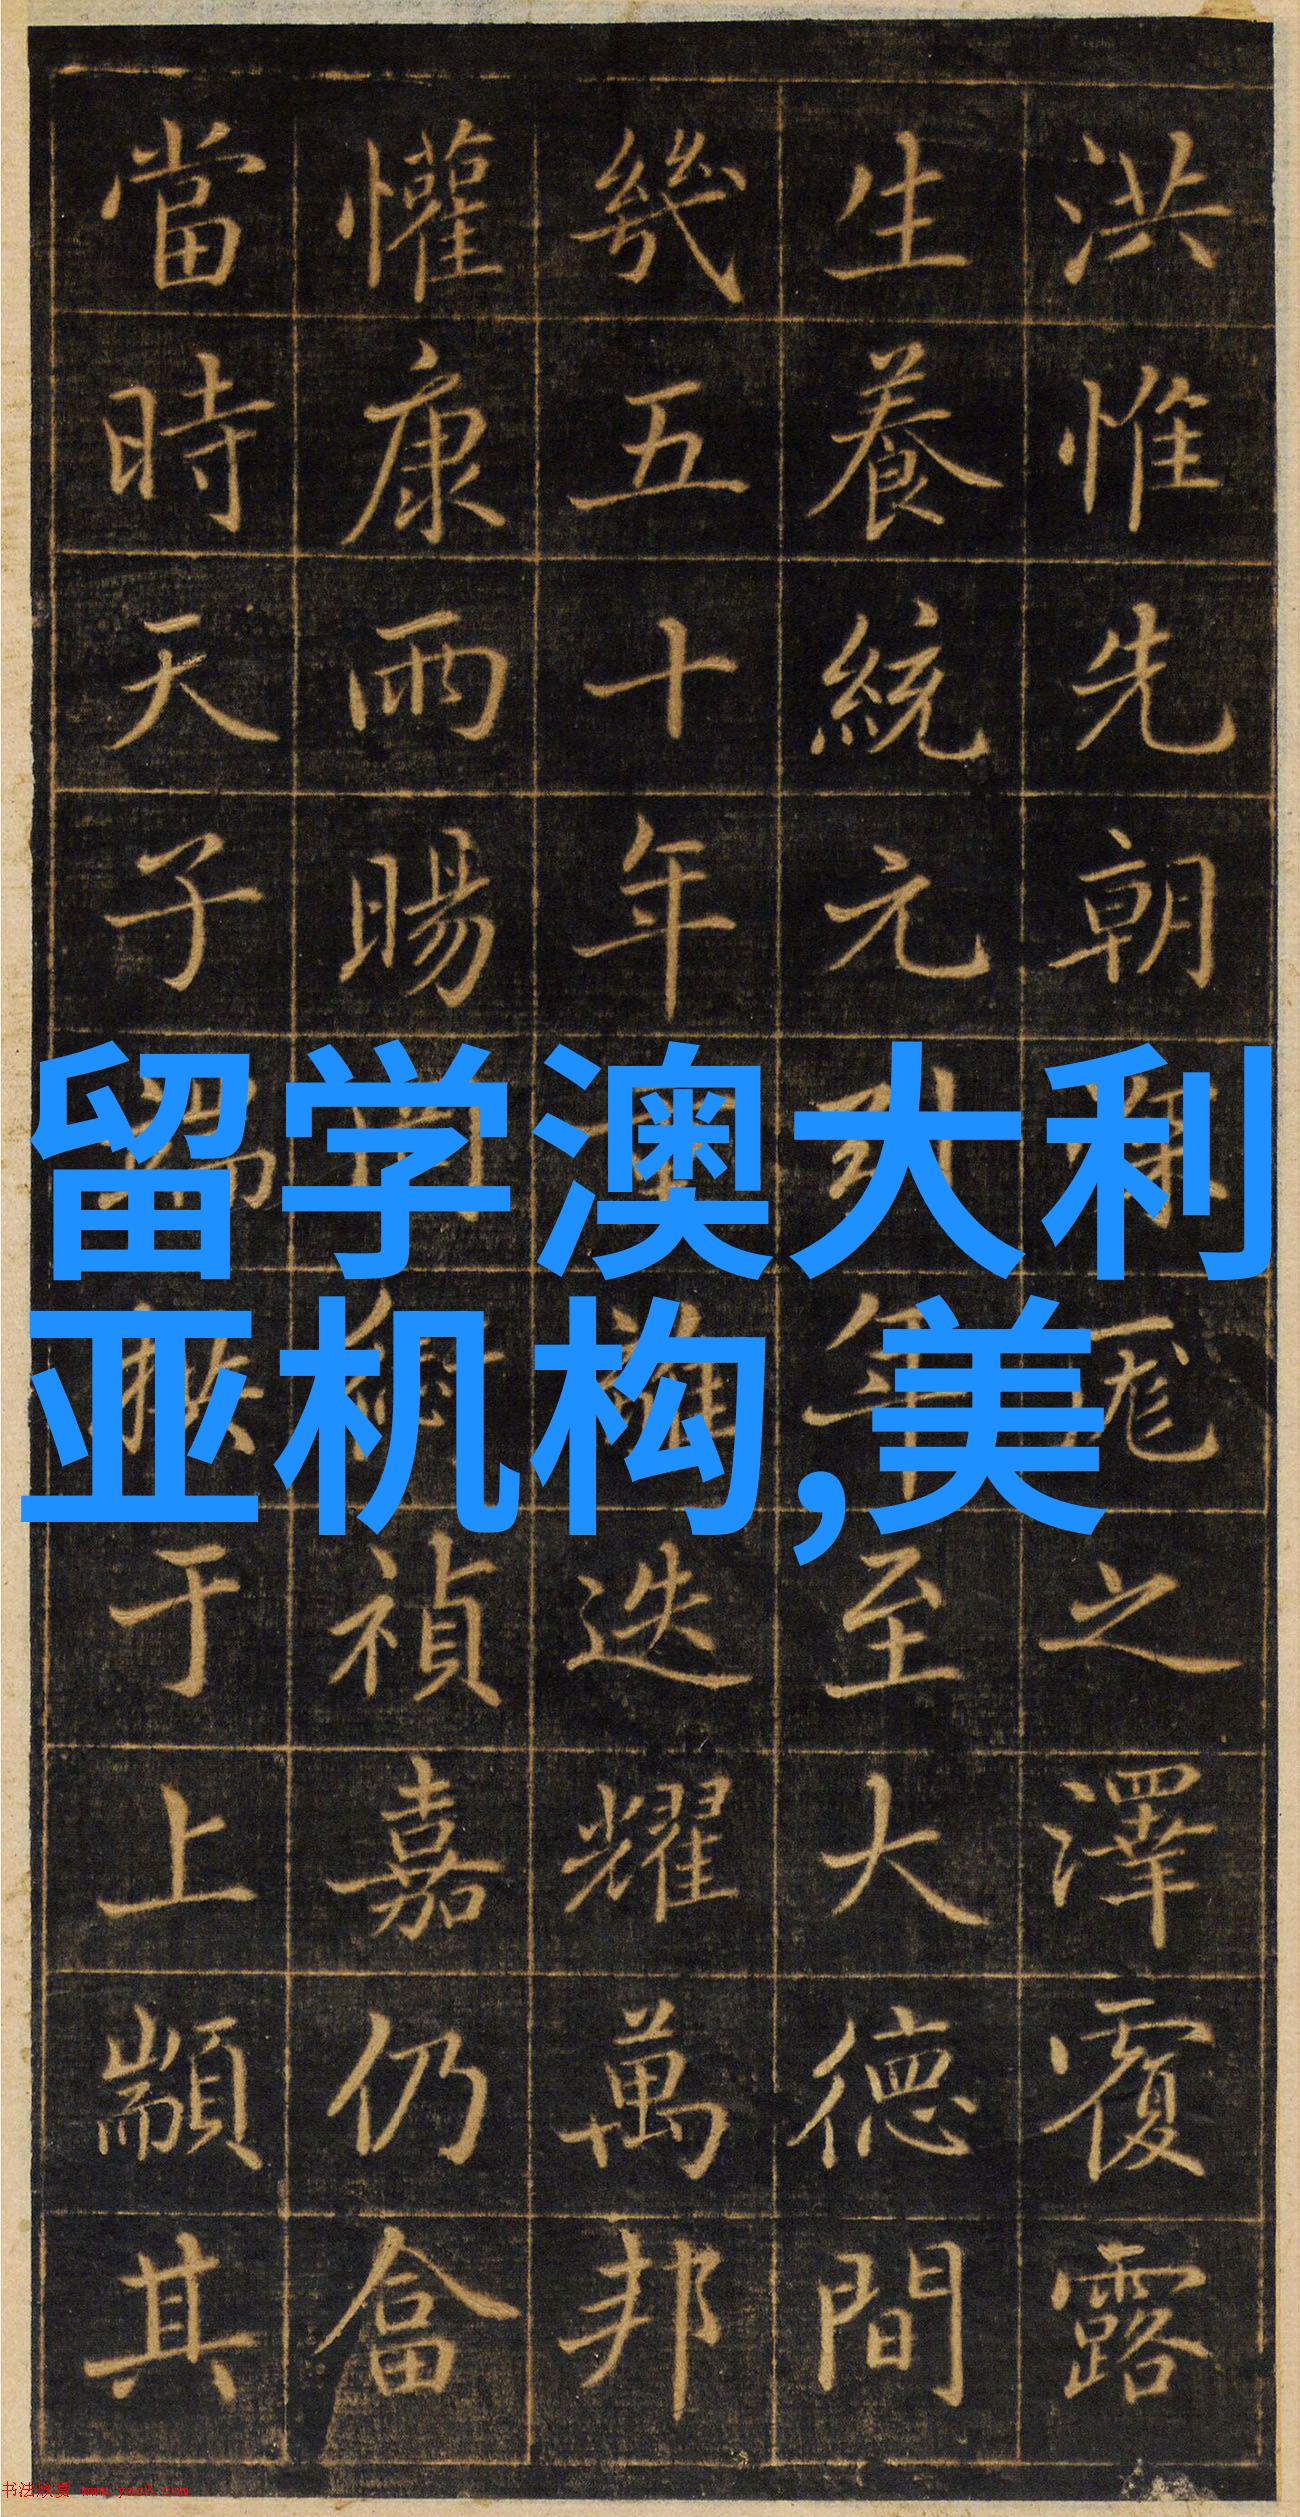 洪惟先朝厖之澤覆露
生養統元年至大德間
幾五十年迭耀萬邦
懽康雨暘禎嘉仍畣
當時天子端拱于上顒其
留学澳大利
亚机构,美
书法欣赏 www.yac8.com